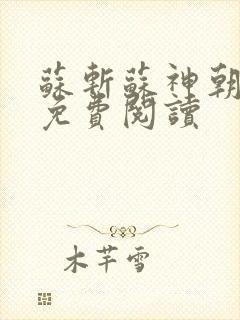 蘇斬蘇神朝
免費閱讀
木芊雪